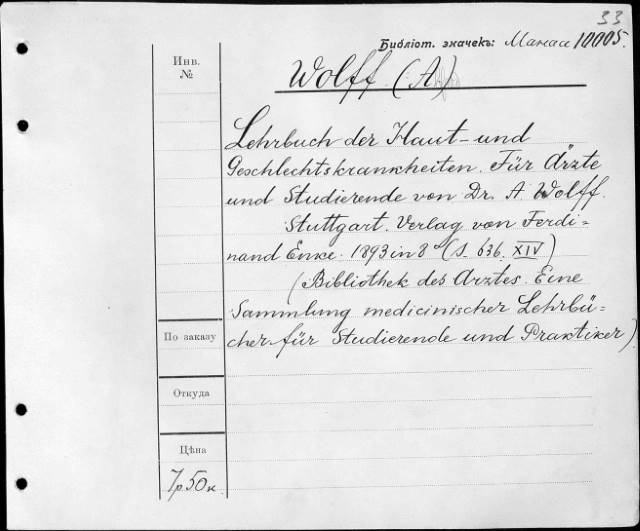 33
Библіот. значекъ: Манасе 10005.
Инв.
№
Wolff (A)
Lehrbuch der Haut- und
Geschlechtskrankheiten. Für Ärzte
und Studierende von Dr. A. Wolff.
Stuttgart. Verlag von Ferdi=
nand Enke. 1893 in 8° (S. 636. XIV)
(Bibliothek des Arztes. Eine
Sammlung medicinischer Lehrbü=
cher für Studierende und Praktiker)
По заказу
Откуда
Цѣна
7р 50к